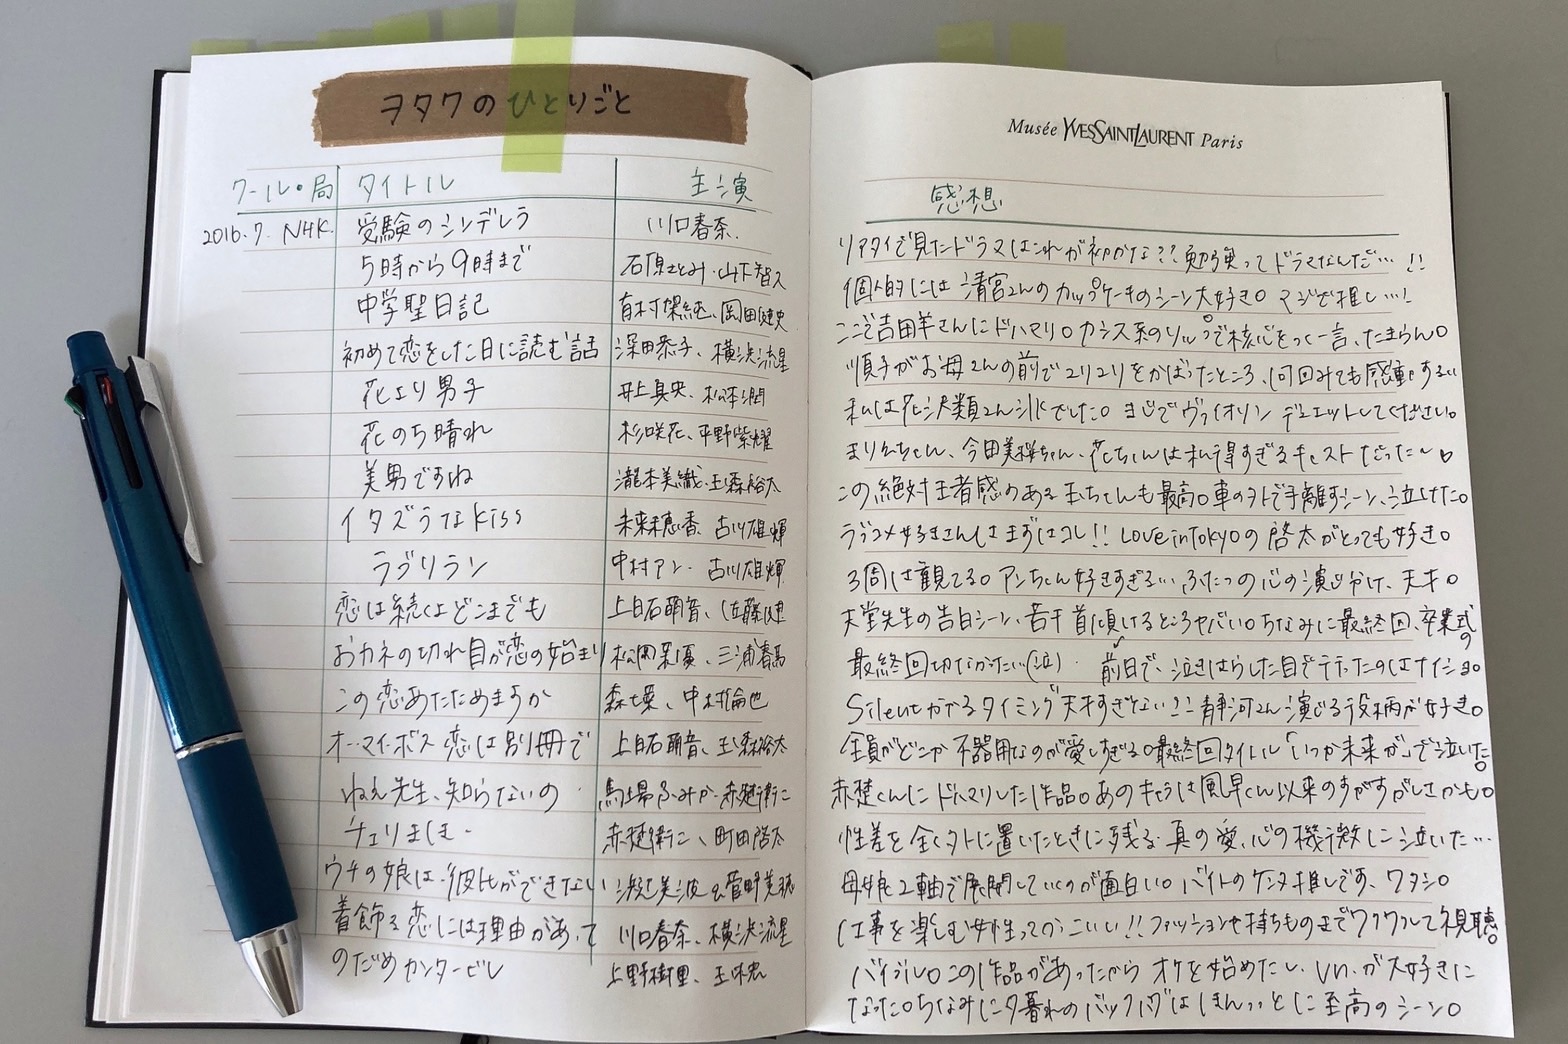 ヲタクのひとりごと
Musée YVESSAINTLAURENT Paris
クール・局 タイトル 主演 感想
2016.7. NHK 受験のシンデレラ 川口春奈、
リアタイで見たドラマはこれが初かな??勉強ってドラマなんだ…!!
5時から9時まで 石原さとみ・山下智久
個人的には清宮さんのカップケーキのシーン大好き。マジで推し…!
中学聖日記 有村架純、岡田健史
ここで吉田羊さんにドハマり。カシス系のリップで核心をつく一言、たまらん。
初めて恋をした日に読む話 深田恭子、横浜流星
順子がお母さんの前でユリユリをかばったところ、何回みても感動する…
花より男子 井上真央、松本潤
私は花沢類さん派でした。ヨシでヴァイオリンデュエットしてください。
花のち晴れ 杉咲花、平野紫耀
まりんちゃん、今田美桜ちゃん、花ちゃんは私得すぎるキャストだった〜♡
美男ですね 瀧本美織、玉森裕太
この絶対王者感のある玉ちゃんも最高。車のヲトで手離すシーン、泣けた。
イタズラなkiss 未来穂香、古川雄輝
ラブコメ好きさんはまずはコレ!! Love in Tokyoの啓太がとっても好き。
ラブリラン 中村アン・古川雄輝
3周は観てる。アンちゃん好きすぎる… ふたつの心の演じ分け、天才。
恋は続くよどこまでも 上白石萌音、佐藤健
天堂先生の告白シーン、若干首傾けるところヤバい。ちなみに最終回、卒業式の
おカネの切れ目が恋の始まり 松岡茉優、三浦春馬
最終回切なかったい(泣)・前日で、泣きはらした目で行ったのはナイショ。
この恋あたためますか 森七菜、中村倫也
Silentがでるタイミング天才すぎない?? 静河さん演じる役柄が好き。
オー・マイ・ボス 恋は別冊で 上白石萌音、玉森裕太
全員がどこか不器用なのが愛しすぎる。最終回タイトル「いつか未来が」で泣いた。
ねぇ先生、知らないの 馬場ふみか・赤楚衛二
赤楚くんにドハマりした作品。あのキャラは風早くん以来のすがすがしさかも。
チェリまほ 赤楚衛二、町田啓太
性差を全く外に置いたときに残る真の愛、心の機微に泣いた…
ウチの娘は彼氏ができない 浜辺美波&菅野美穂
母娘2軸で展開していくのが面白い。バイトのケンタ推しです、ワタシ。
着飾る恋には理由があって 川口春奈、横浜流星
仕事を楽しむ女性ってかっこいい!! ファッションや持ちものまでワクワクして視聴。
のだめカンタービレ 上野樹里、玉木宏
バイブル。この作品があったからオケを始めたし、Vn.が大好きに
なった。ちなみに夕暮れのバックハグはほんっっとに至高のシーン。